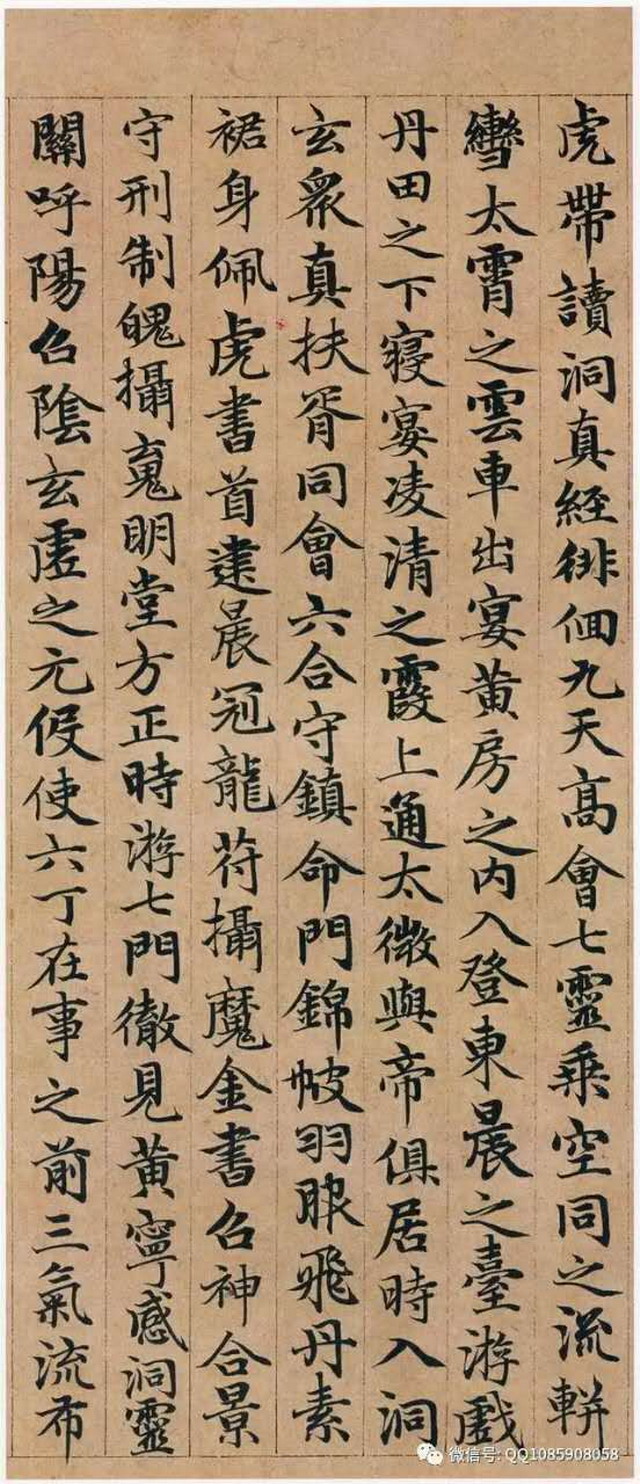 虎帶讀洞真經徘佪九天高會七靈乘空同之流輧
轡太霄之雲車出宴黃房之內入登東晨之臺游戲
丹田之下寢宴凌清之霞上通太微與帝俱居時入洞
玄眾真扶胥同會六合守鎮命門錦帔羽服飛丹素
裙身佩虎書首建晨冠龍苻攝魔金書召神合景
守刑制魄攝䰟明堂方正時游七門徹見黃寧感洞靈
關呼陽召陰玄虛之元伇使六丁在事之前三氣流布
微信号: QQ1085908058